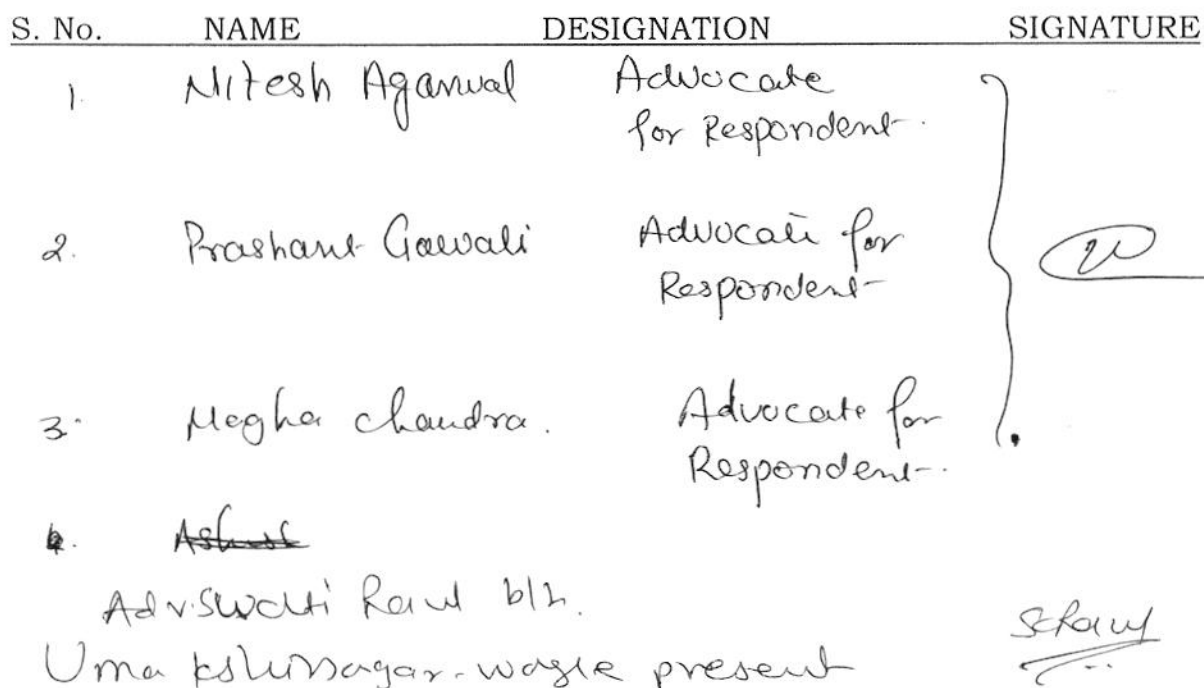 S. No. NAME DESIGNATION SIGNATURE
1. Nitesh Agarwal Advocate
for Respondent.
2. Prashant Gawali Advocate for
Respondent
3. Megha Chandra. Advocate for
Respondent.
4.
Adv. Swati Raut b/h.
Uma Kshirsagar-Wagle present